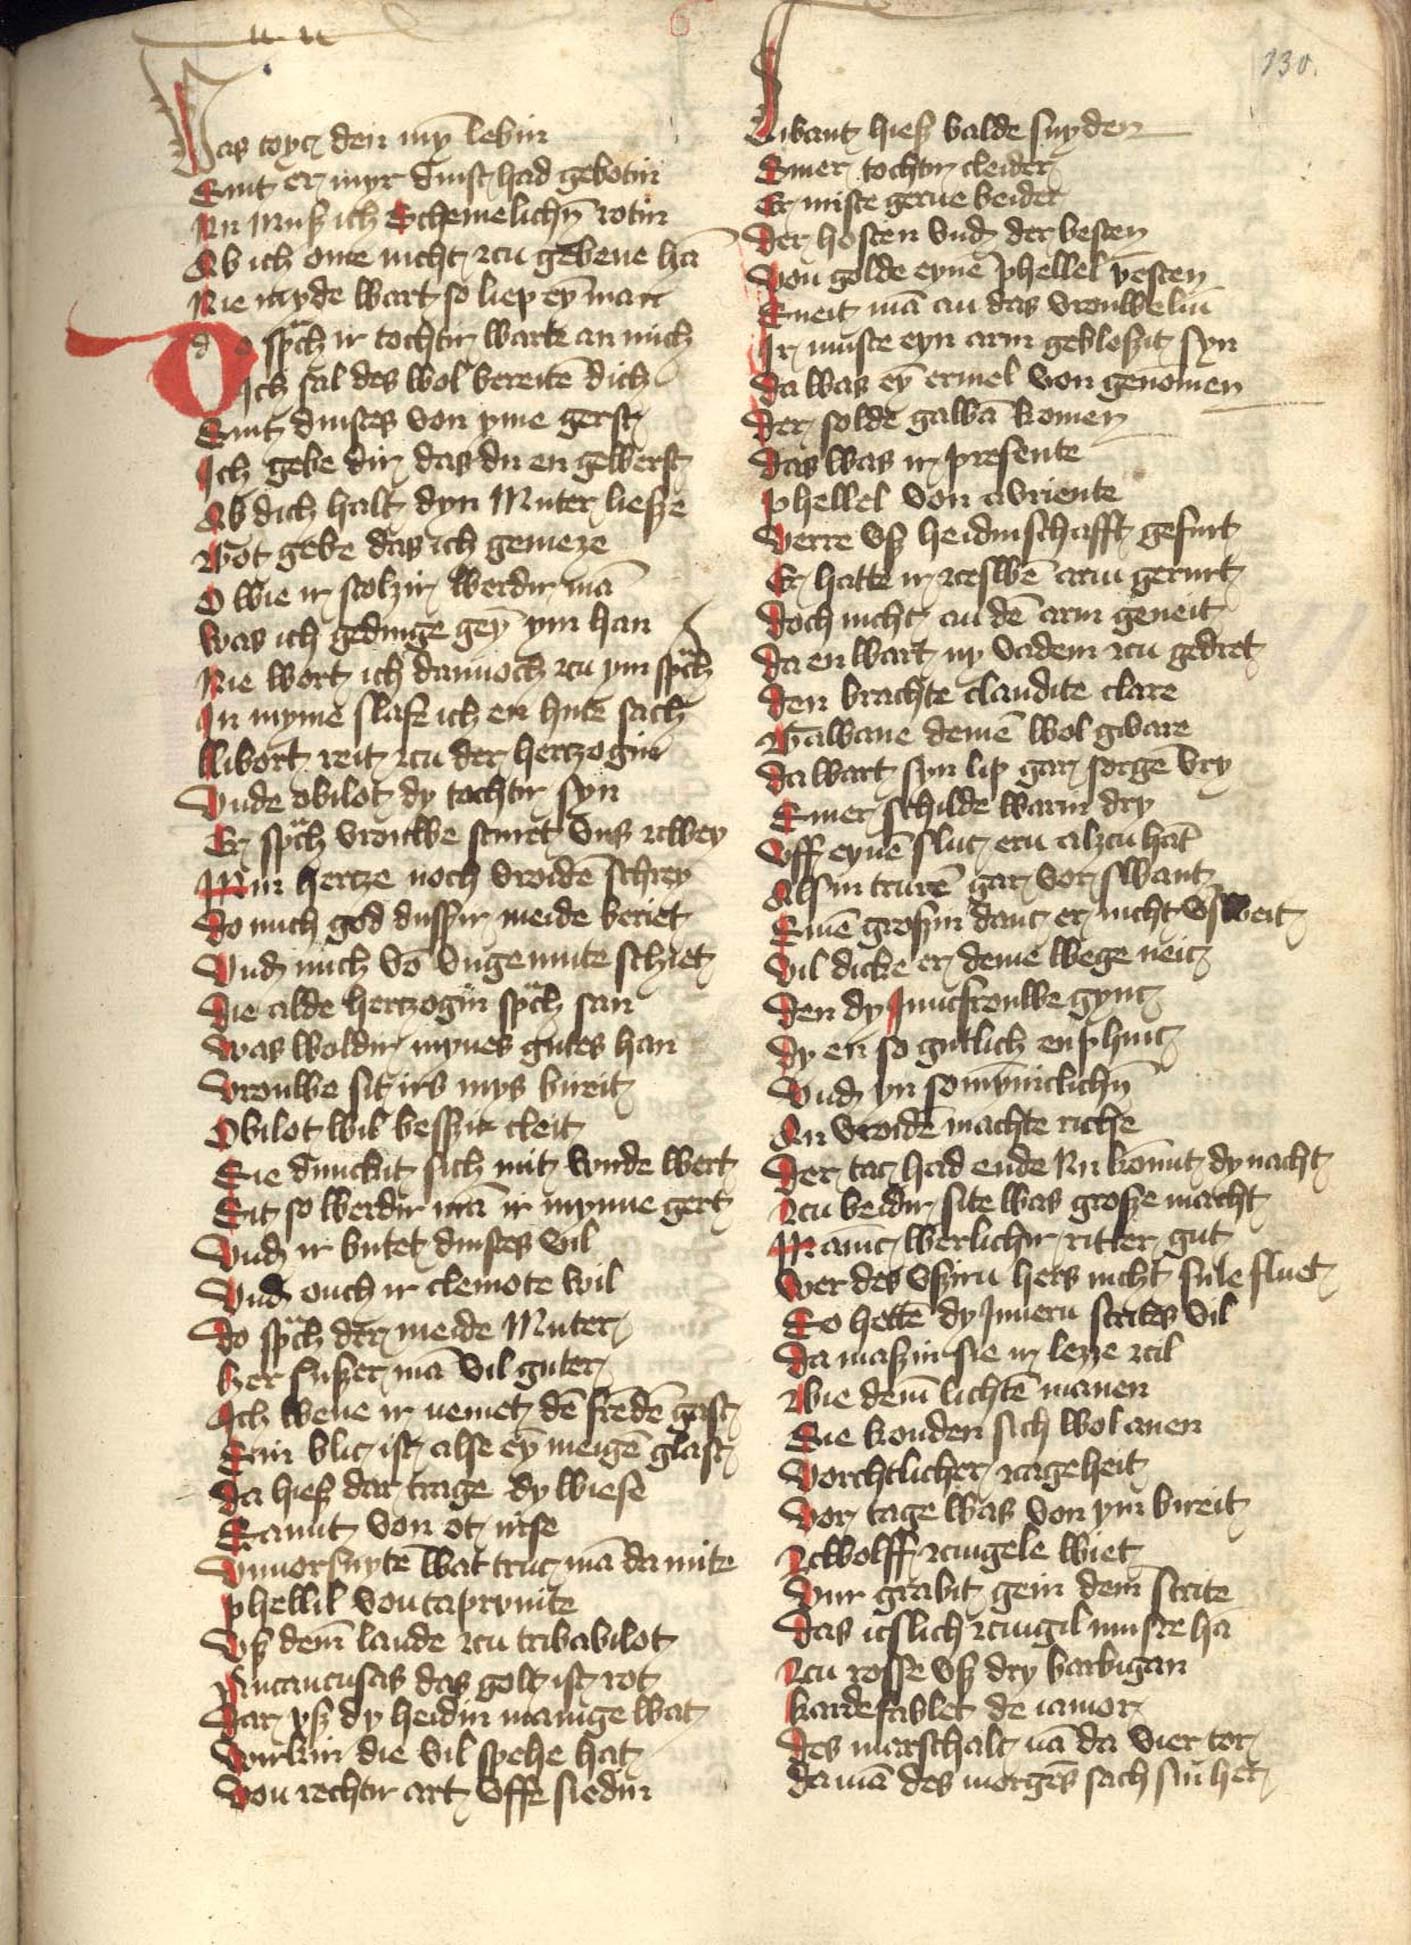 130.
Was toyc den my̅ lebin
Sint er myr dinst had gebotin
Nu Muß ich Schemelich̅n rotin
Ab ich ome nicht zcu gebene ha̅
Nie myde wart so liep ey̅ man
do sp̈ch ir tochtir warte an mich
Ich sal des wol bereite̅ dich
Sint dinstes von yme gerst
Ich gebe dir das du en gewerst
Ab dich halt dyn Muter liesze
Got gebe das ich genieze
O wie ir stolzir werdir ma̅
Was ich gedinge gey̅ ym han
Nie wort ich dannoch zcu ym sp̈ch
In myme slafe ich en hute sach
Libort reit zcu der hertzogin
Unde obilot dy tochtir syn
Er sp̈ch vrouwe sturet vns zcwey
Min hertze noch vroide̅ schrey
Do mich god disszir meide beriet
Vnd mich vo̅ vngemute schiet
Die alde hertzogin sp̈ch san
Was woldir mynes gutes han
Vrouwe sit irs mys bireit
Obilot wil besszir cleit
Sie dunckit sich mit wirde wert
Sit so werdir ma̅ ir mynne gert
Vnd ir butet dinstes vil
Vnd ouch ir cleinote wil
Do sp̈ch der meide Muter
her suszer ma̅ vil guter
Ich wene ir nemet de̅ fre̅de̅ gast
Sin blic ist alse ey̅ meige̅ glast
Da hiesz dar trage dy wiese
Samit von otnise
Vnuorsnyte̅ wat truc ma̅ da mite
Phellil von tapronite
Vsz dem̅ lande zcu tribabilot
Ancaucusas das golt ist rot
Dar ysz dy heidin manige wat
Wirkin die vil spehe hat
Von rechtir art vffe siedin
Libant hiesz balde snyden
Siner tochtir cleider
Er miste gerne beider
Der hosten vnd der besten
Von golde eyne̅ phellel vesten
Sneit ma̅ an das vrouwelin
Ir muste eyn arm geblosit syn
Da was ey̅ ermel von genomen
Der solde gawa̅ komen
Das was ir presente
Phellel von avriente
Verre vsz heidinschafft gefurt
Er hatte ir zceswe̅ arm gerurt
Doch nicht an de̅ arm geneit
Da en wart ny vadem zcu gedret
Den brachte claudite clare
Gawane deme̅ wol gvare
Da wart syn lip gar sorge̅ vry
Siner schilde warin dry
Vff eyne̅ sluc ern alzcuha̅t
Alsin trure̅ gar vorswant
Sine̅ groszin danc er nicht vsweit
Vil dicke er deme wege neic
Den dy Jnncfrouwe gync
Dy en so gutlich enphinc
Vnd yn so my̅niclich̅n
An vroide̅ machte riche
Der tac had ende Nu ko̅mt dy nacht
Zcu beidir site was grosze macht
Manic werlichir ritter gut
Wer des vszirn hers nicht sule fluct
So hette̅ dy Jnnern strites vil
Da maszin sie ir letze zcil
Wie dem̅ lichte̅ manen
Sie konden sich wol anen
Vorchtlicher zcageheit
Vor tage was von ym bireit
Zcwolff zcingele wiet
Vur grabit gein dem̅ strite
Das icslich zcingil muste ha̅
Zcu rosse vsz dry barbigan
kardefablet de iamor
Des marschalc na̅ da vier tor
Da ma̅ des morge̅s sach sin her